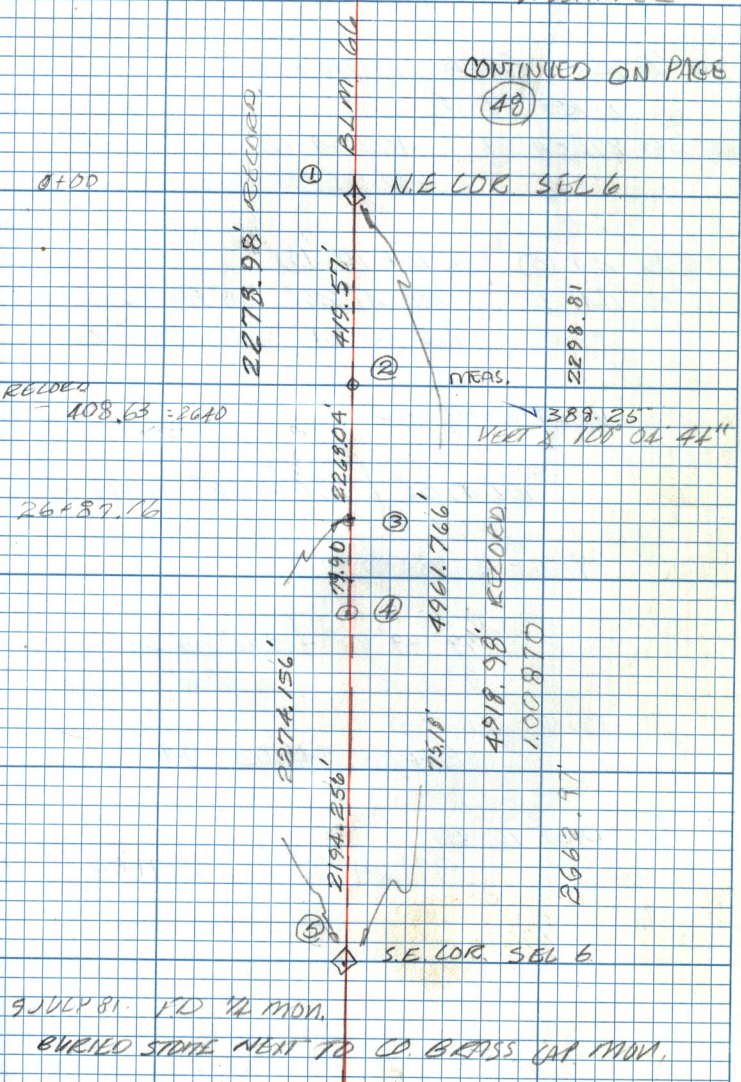 CONTINUED ON PAGE
48
BLM 66
2278.98' RECORD
0+00
1
N.E COR SEC 6
419.57'
2298.81
2
MEAS.
RECORD
- 408.63 = 2640
388.25
VERT ∡ 100° 04' 44"
2268.04'
26+87.16
3
79.90'
4961.766'
4918.98' RECORD
4
1.00870
2274.156'
75.18'
2194.256'
2662.97'
5
S.E. COR. SEC 6
9 JULY 81. FD 1/4 MON.
BURIED STONE NEXT TO CO. BRASS CAP MON.